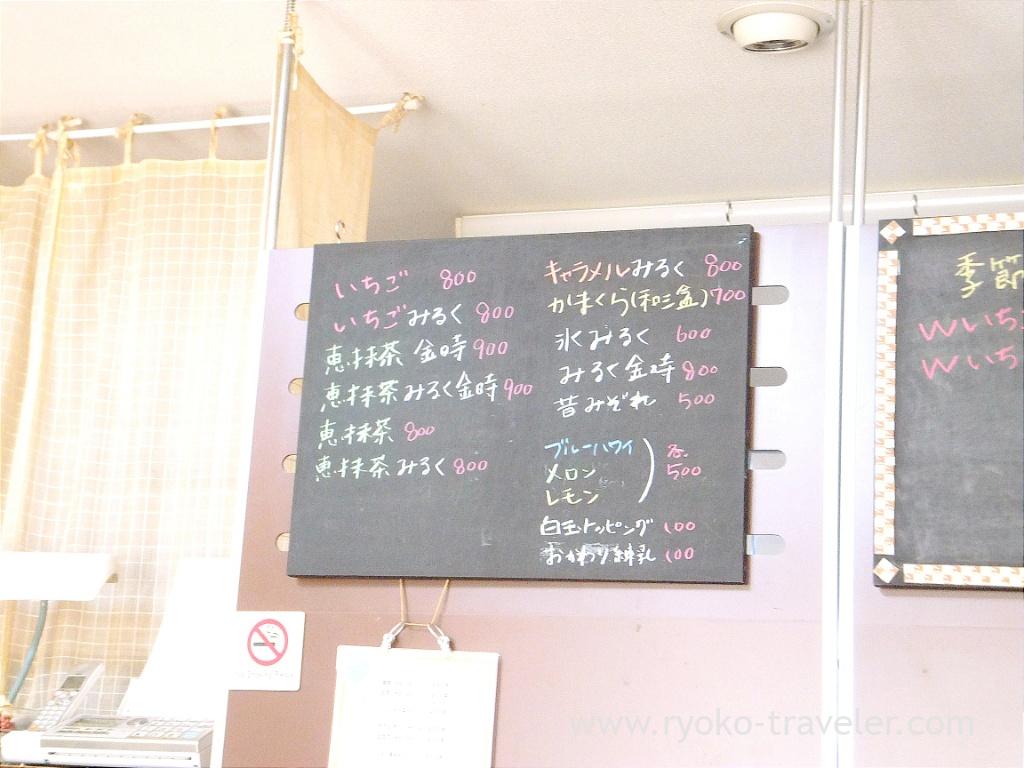 いちご 800
いちごみるく 800
恵抹茶 金時 900
恵抹茶みるく金時 900
恵抹茶 800
恵抹茶みるく 800
キャラメルみるく 800
かまくら(和三盆) 700
氷みるく 600
みるく金時 800
昔みぞれ 500
ブルーハワイ
メロン
レモン
各500
白玉トッピング 100
おかわり練乳 100
季節
Wいち
Wいち
www.ryoko-traveler.com